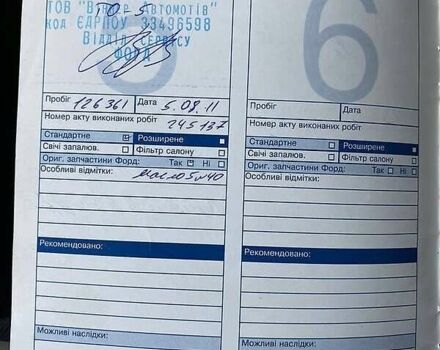 ТО-5
ТОВ "В Автомотів"
код ЄДРПОУ 33496598
Відділ сервісу
ФОРД
6
Пробіг 126361 Дата 5.08.11
Номер акту виконаних робіт
245137
Стандартне Розширене
Свічі запалюв. Фільтр салону
Ориг. запчастини Форд: Так Ні
Особливі відмітки: Масло 5w40
Рекомендовано:
Можливі наслідки:
Пробіг Дата
Номер акту виконаних робіт
Стандартне Розширене
Свічі запалюв. Фільтр салону
Ориг. запчастини Форд: Так Ні
Особливі відмітки:
Рекомендовано:
Можливі наслідки: